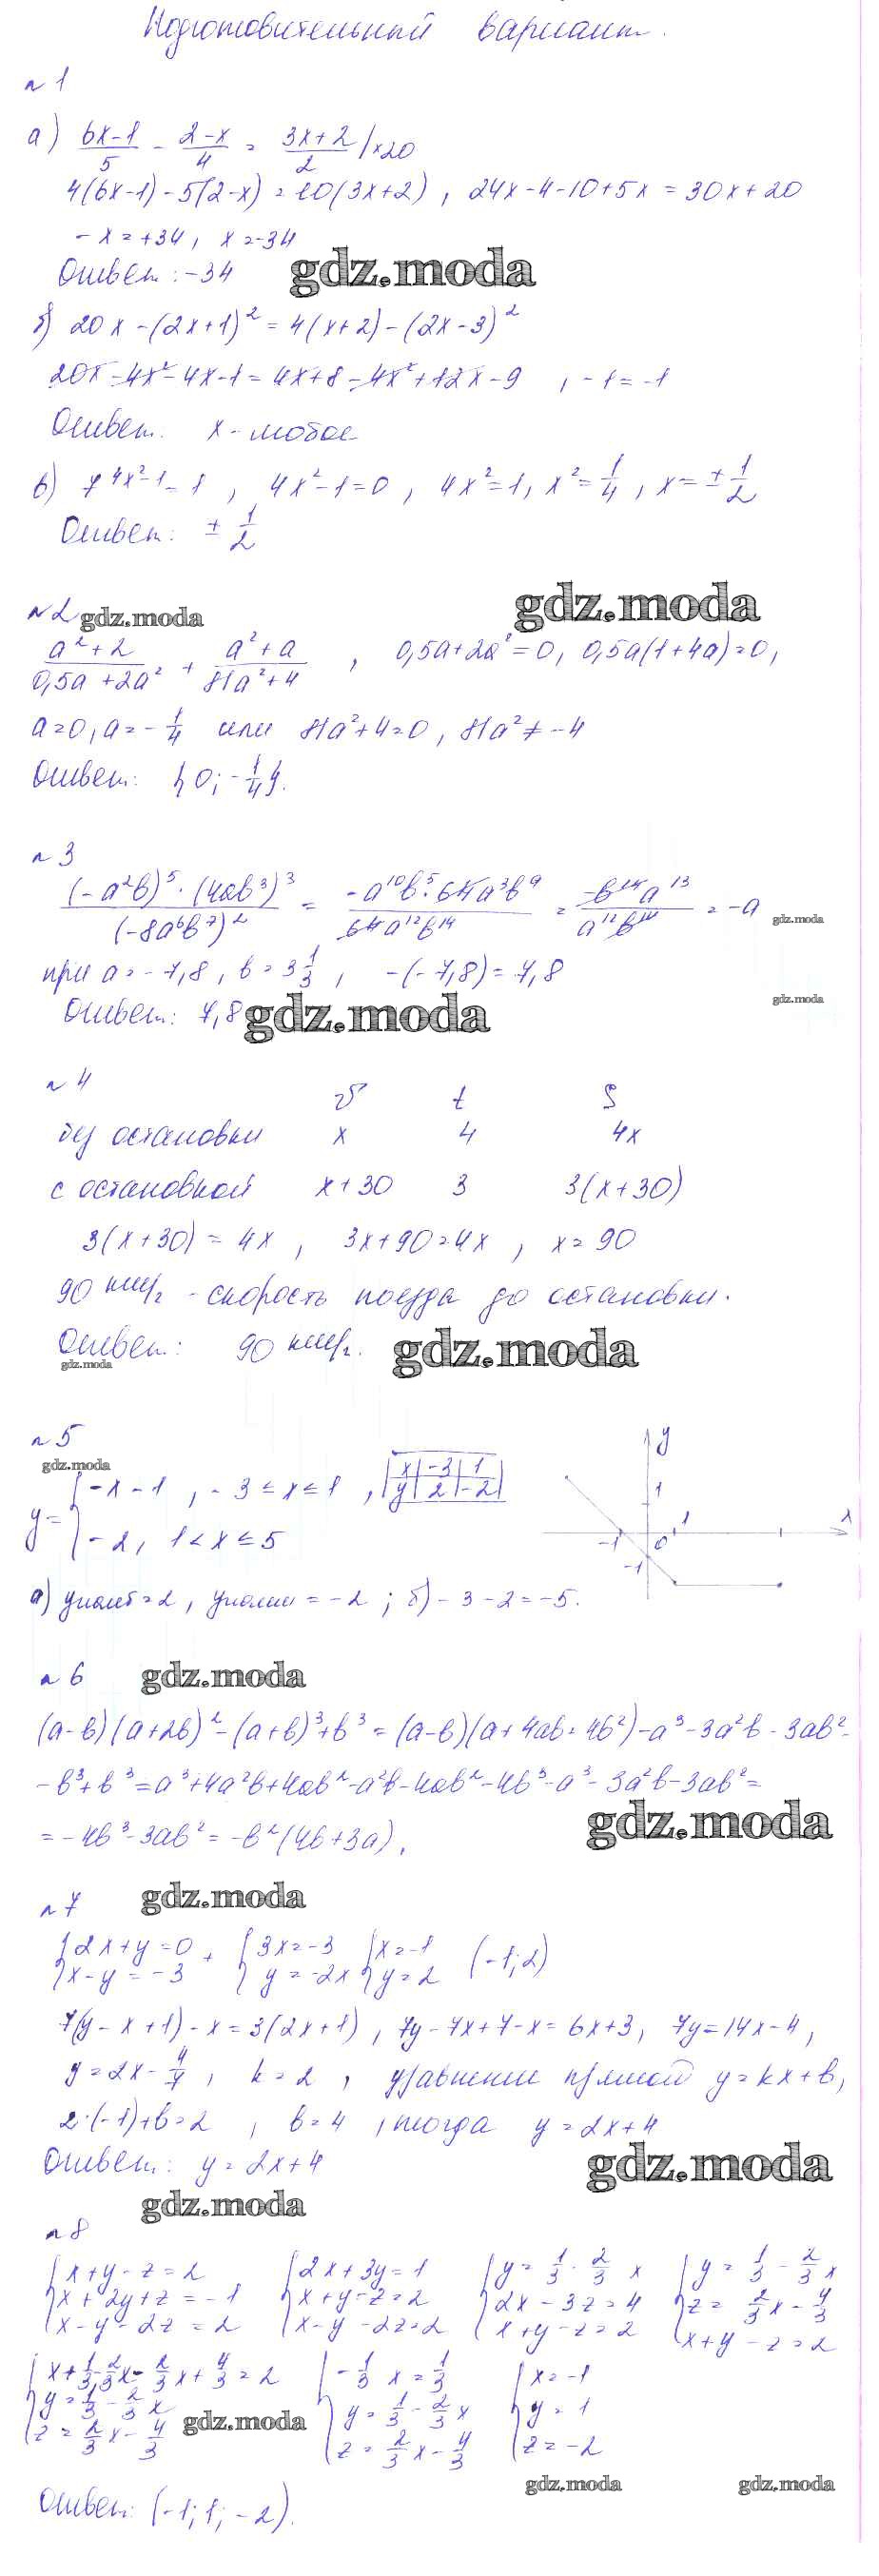 Подготовительный вариант.
№ 1
а) (6x-1)/5 - (2-x)/4 = (3x+2)/2 |×20
4(6x-1)-5(2-x)=10(3x+2), 24x-4-10+5x=30x+20
-x=+34, x=-34
Ответ: -34 gdz.moda
б) 20x-(2x+1)² = 4(x+2)-(2x-3)²
20x-4x²-4x-1=4x+8-4x²+12x-9 , -1=-1
Ответ: x-любое
в) 7^(4x²-1)=1 , 4x²-1=0 , 4x²=1, x²=1/4 , x=±1/2
Ответ: ±1/2
gdz.moda
№2 gdz.moda
(a²+2)/(0,5a+2a²) + (a²+a)/(81a²+4) , 0,5a+2a²=0, 0,5a(1+4a)=0,
a=0, a=-1/4 или 81a²+4=0, 81a²≠-4
Ответ: {0; -1/4}.
№ 3
(-a²b)⁵·(4ab³)³/(-8a⁶b⁷)² = -a¹⁰b⁵·64a³b⁹/64a¹²b¹⁴ = -b¹⁴a¹³/a¹²b¹⁴ = -a gdz.moda
при a=-7,8, b=3 1/3 , -(-7,8)=7,8 gdz.moda
Ответ: 7,8 gdz.moda
№ 4
v t S
без остановки x 4 4x
с остановкой x+30 3 3(x+30)
3(x+30)=4x , 3x+90=4x , x=90
90 км/г - скорость поезда до остановки.
Ответ: 90 км/г. gdz.moda
gdz.moda
№ 5
gdz.moda
y = { -x-1 , -3≤x≤1 , x -3 1
y 2 -2
-2, 1<x≤5
y
1
x
-1 0 1
-1
а) yнаиб=2, yнаим=-2 ; б) -3-2=-5.
№ 6 gdz.moda
(a-b)(a+2b)²-(a+b)³+b³=(a-b)(a+4ab+4b²)-a³-3a²b-3ab²-
-b³+b³=a³+4a²b+4ab²-a²b-4ab²-4b³-a³-3a²b-3ab²=
=-4b³-3ab²=-b²(4b+3a). gdz.moda
№ 7 gdz.moda
{2x+y=0 + {3x=-3 {x=-1 (-1;2)
{x-y=-3 {y=-2x {y=2
7(y-x+1)-x=3(2x+1), 7y-7x+7-x=6x+3, 7y=14x-4,
y=2x-4/7, k=2 , уравнение прямой y=kx+b,
2·(-1)+b=2 , b=4 , тогда y=2x+4
Ответ: y=2x+4 gdz.moda
gdz.moda
№ 8
{x+y-z=2 {2x+3y=1 {y=1/3-2/3 x {y=1/3-2/3 x
{x+2y+z=-1 {x+y-z=2 {2x-3z=4 {z=2/3 x-4/3
{x-y-2z=2 {x-y-2z=2 {x+y-z=2 {x+y-z=2
{x+1/3-2/3x-2/3x+4/3=2 {-1/3 x=1/3 {x=-1
{y=1/3-2/3 x {y=1/3-2/3 x {y=1
{z=2/3 x-4/3 gdz.moda {z=2/3 x-4/3 {z=-2
gdz.moda gdz.moda
Ответ: (-1; 1; -2).